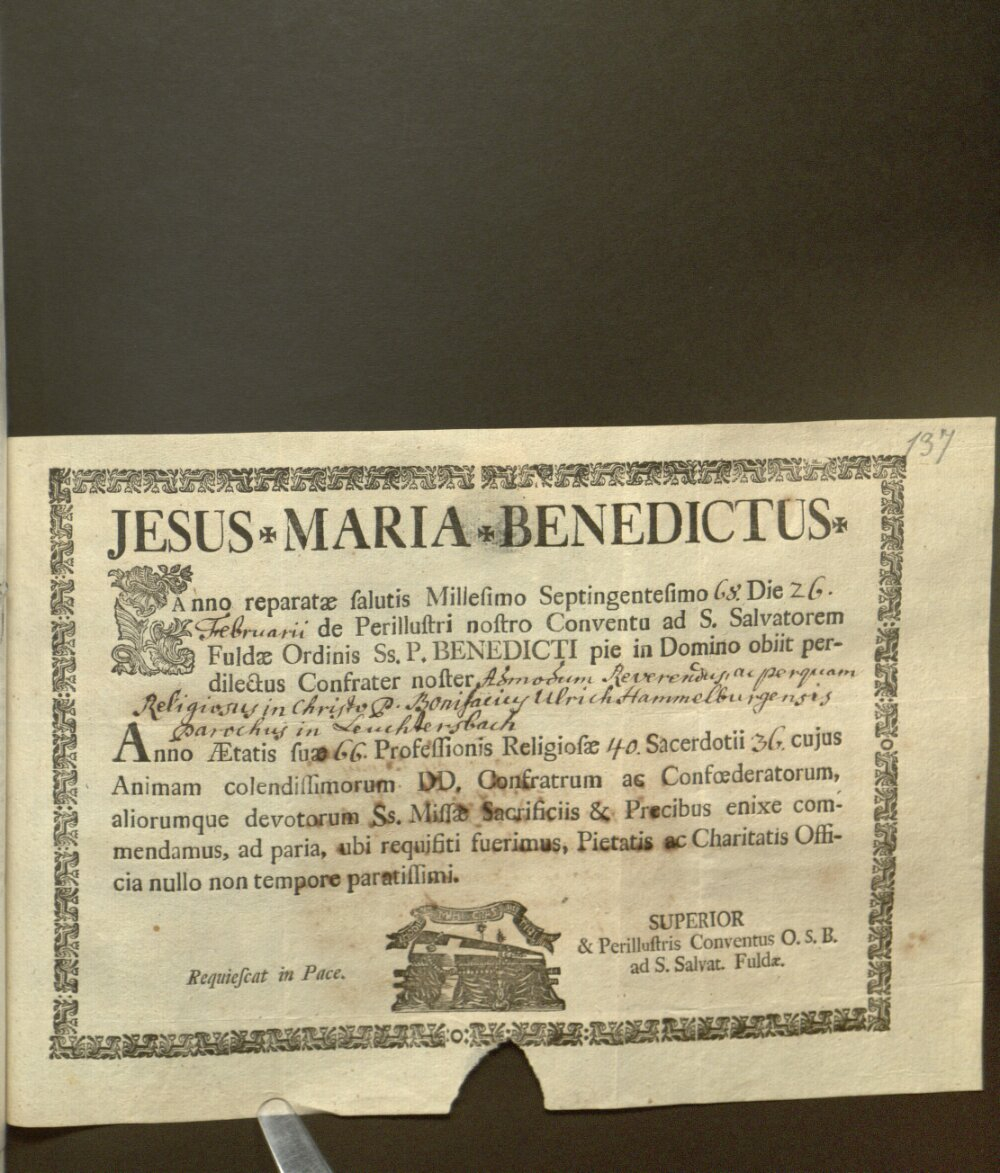 137
JESUS ✠ MARIA ✠ BENEDICTUS ✠
Anno reparatæ ſalutis Milleſimo Septingenteſimo 68. Die 26.
Februarii de Perilluſtri noſtro Conventu ad S. Salvatorem
Fuldæ Ordinis Ss. P. BENEDICTI pie in Domino obiit per-
dilectus Confrater noſter Admodum Reverendus ac perquam
Religiosus in Christo P. Bonifacius Ulrich Hammelburgensis
parochus in Leuchtersbach
Anno Ætatis ſuæ 66. Profeſſionis Religioſæ 40. Sacerdotii 36. cujus
Animam colendiſſimorum DD. Confratrum ac Confœderatorum,
aliorumque devotorum Ss. Miſſæ Sacrificiis & Precibus enixe com-
mendamus, ad paria, ubi requiſiti fuerimus, Pietatis ac Charitatis Offi-
cia nullo non tempore paratiſſimi.
SUPERIOR
& Perilluſtris Conventus O. S. B.
ad S. Salvat. Fuldæ.
Requieſcat in Pace.